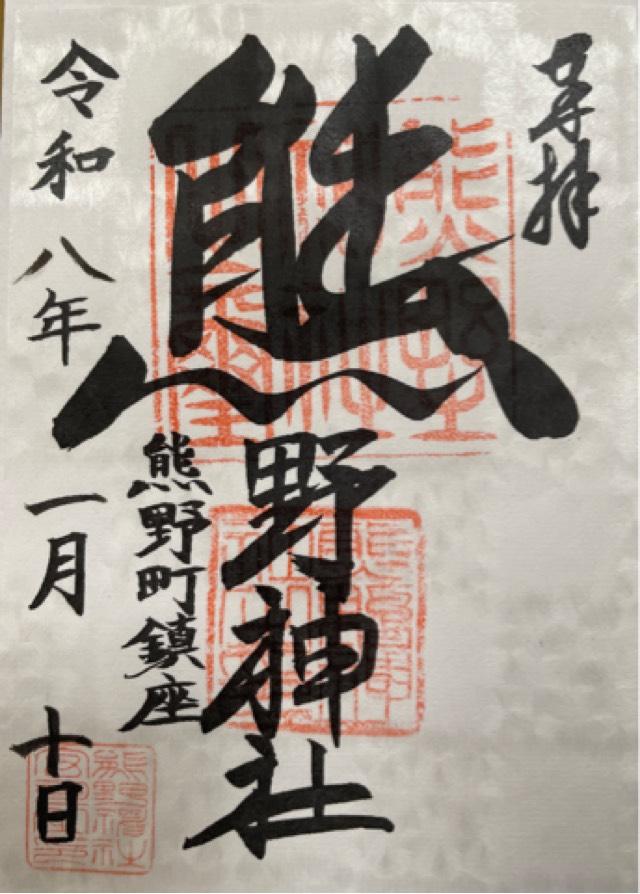 奉拝
熊野神社
熊野町鎮座
令和八年一月十日